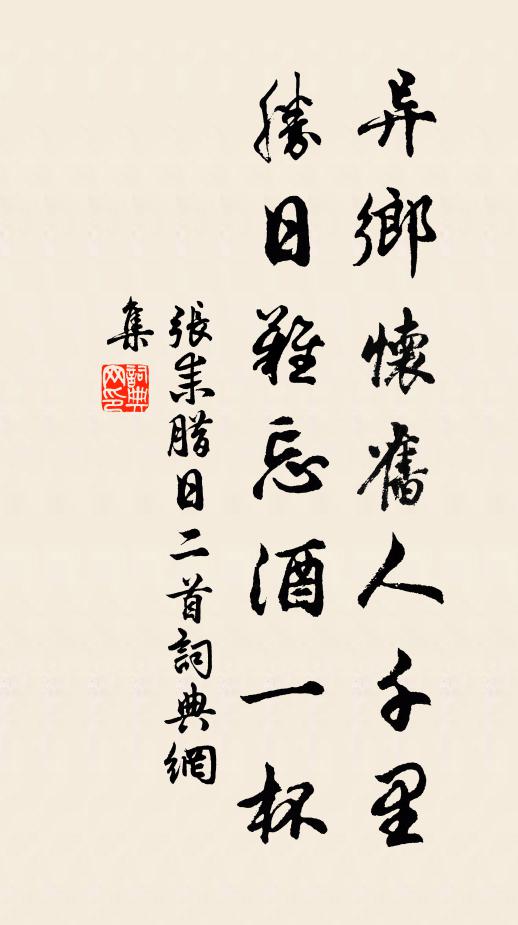 异鄉懷舊人千里
勝日難忘酒一杯
張耒腊日二首詞典網
集
詞典网印